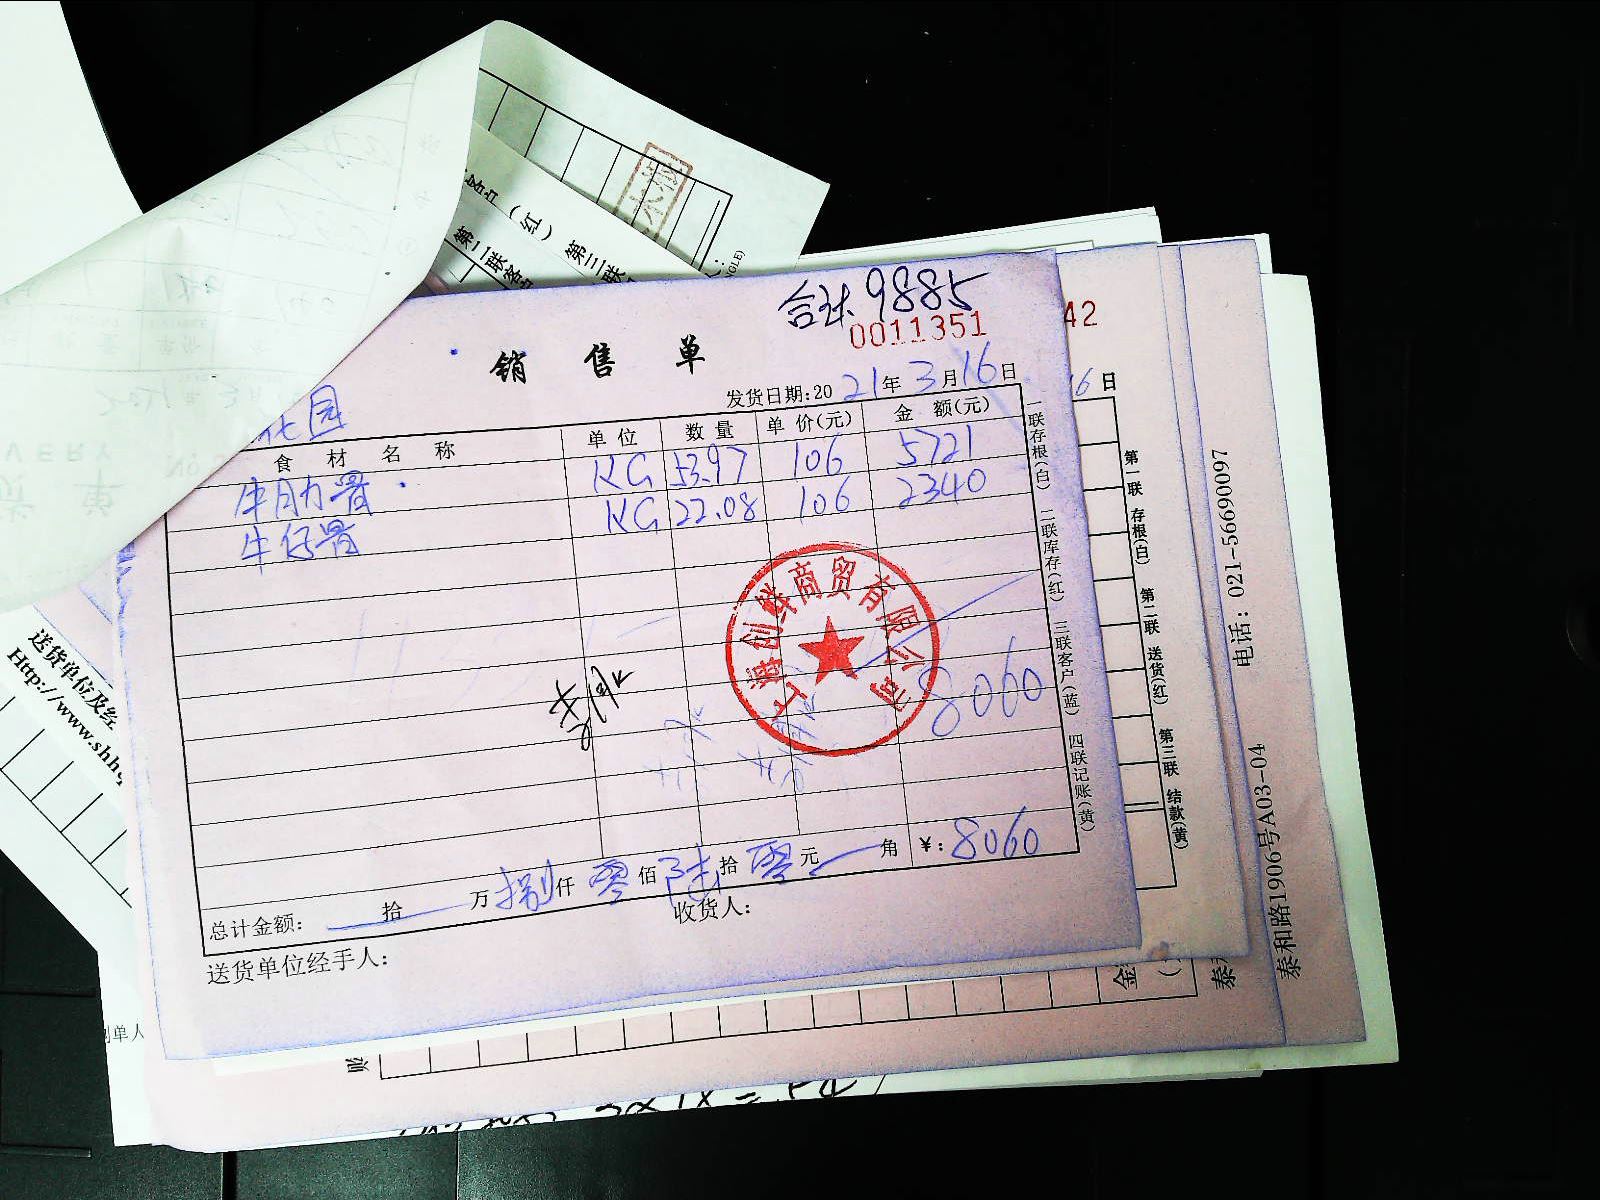 合计.9885
0011351
42
销售单
花园
发货日期:2021年3月16日
16日
食材名称 单位 数量 单价(元) 金额(元)
牛肋 KG 53.97 106 5721
牛仔 KG 22.08 106 2340
8060
上海创鲜商贸有限公司
总计金额: 拾 万捌仟零佰陆拾零元 角 ¥:8060
送货单位经手人: 收货人:
一联存根(白) 二联库存(红) 三联客户(蓝) 四联记账(黄)
第一联 存根(白) 第二联 送货(红) 第三联 结款(黄)
电话: 021-56690097
泰和路1906号A03-04
(红) 第三联
第二联客
送货单位及经
Http://www.shh
制单人